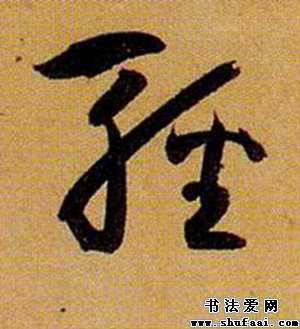 輕
书法爱网
www.shufaai.com